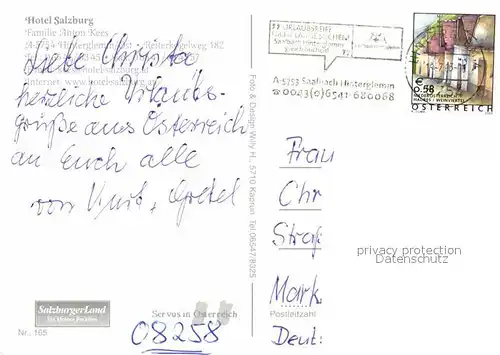 Hotel Salzburg
Familie Anton Kees
A-5754 Hinterglemm Reiterkogelweg 182
Liebe Christa
herzliche Urlaubs-
grüße aus Österreich
an Euch alle
von Kurt + Gretel
Foto & Design Willy H., 5710 Kaprun Tel. 06547/8325
URLAUBSREIF?
Saalbach Hinterglemm
A-5753 Saalbach Hinterglemm
☎ 0043(0)6541-680068
€ 0.58
HADRES / WEINVIERTEL
ÖSTERREICH
Frau
Chr
Straß
privacy protection
Datenschutz
Mark
Postleitzahl
Deut
SalzburgerLand
Servus in Österreich
Nr. 165
08258